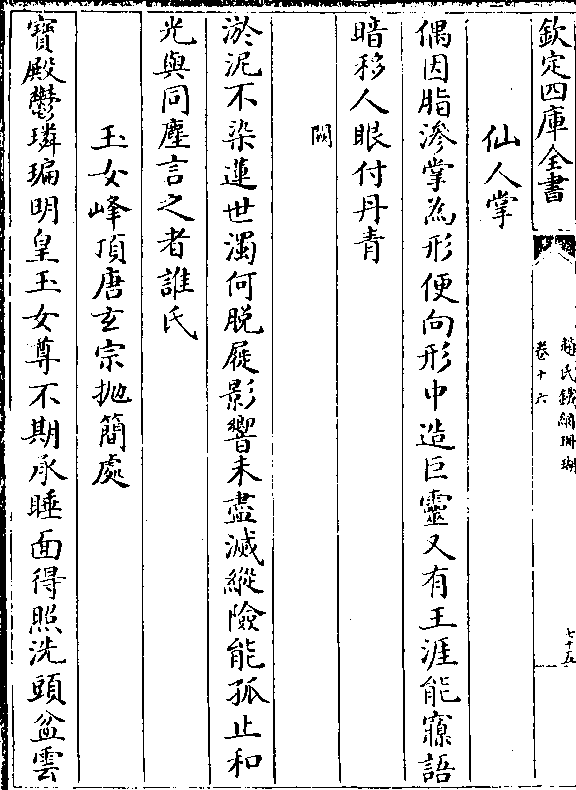 欽定四庫全書
趙氏鐵網珊瑚
卷十六
七十五
仙人掌
偶因脂滲掌為形便向形中造巨靈又有王涯能寱語
暗移人眼付丹青
闕
淤泥不染蓮世濁何脫屣影響未盡滅縱險能孤止和
光與同塵言之者誰氏
玉女峰頂唐玄宗拋簡處
寶殿鬱璘㻞明皇玉女尊不期承唾面得照洗頭盆雲